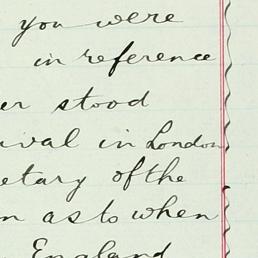 you were
in reference
er stood
ival in London
etary of the
n as to when
England